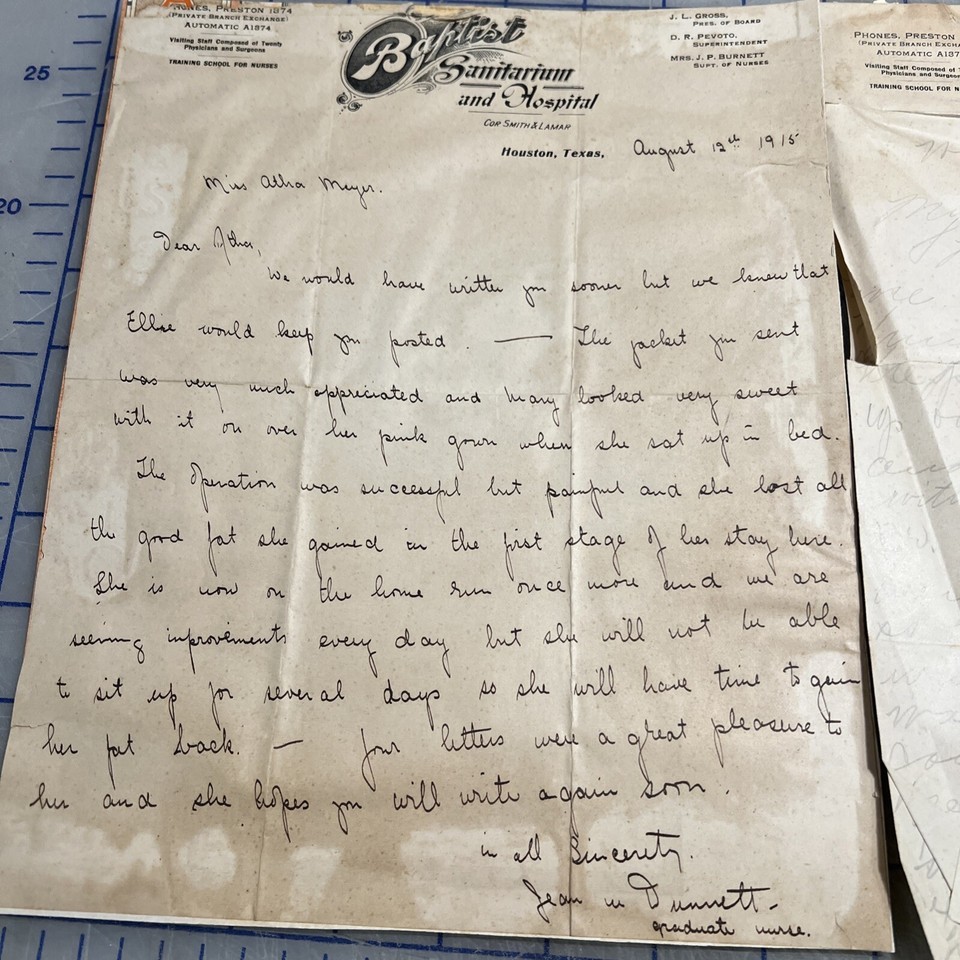 PHONES, PRESTON 1874
(PRIVATE BRANCH EXCHANGE)
AUTOMATIC A1874
Visiting Staff Composed of Twenty
Physicians and Surgeons
TRAINING SCHOOL FOR NURSES
Baptist
Sanitarium
and Hospital
COR SMITH & LAMAR
J. L. GROSS,
PRES. OF BOARD
D. R. PEVOTO,
SUPERINTENDENT
MRS. J. P. BURNETT
SUPT. OF NURSES
Houston, Texas, August 12th 1915
Miss Atha Meyer.
Dear Atha,
We would have written you sooner but we knew that
Ellse would keep you posted. — The jacket you sent
was very much appreciated and Mary looked very sweet
with it on over her pink gown when she sat up in bed.
The operation was successful but painful and she lost all
the good fat she gained in the first stage of her stay here.
She is now on the home run once more and we are
seeing improvements every day but she will not be able
to sit up for several days so she will have time to gain
her fat back. — Your letters were a great pleasure to
her and she hopes you will write again soon.
in all Sincerety.
Jean w Dunnett-
graduate nurse.
PHONES, PRESTON
(PRIVATE BRANCH EXCHA
AUTOMATIC A187
Visiting Staff Composed
Physicians and Surgeon
TRAINING SCHOOL FOR N
25
20